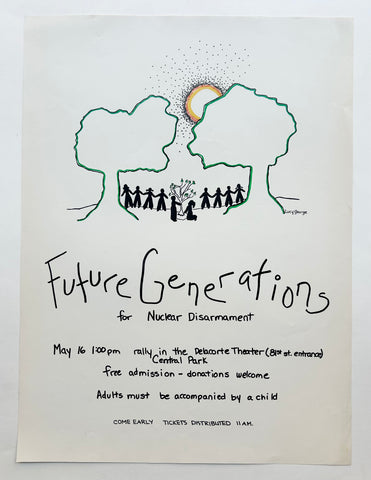 Future Generations
for Nuclear Disarmament
May 16 1:00pm rally in the Delacorte Theater (81st st. entrance)
Central Park
free admission - donations welcome
Adults must be accompanied by a child
COME EARLY TICKETS DISTRIBUTED 11 A.M.